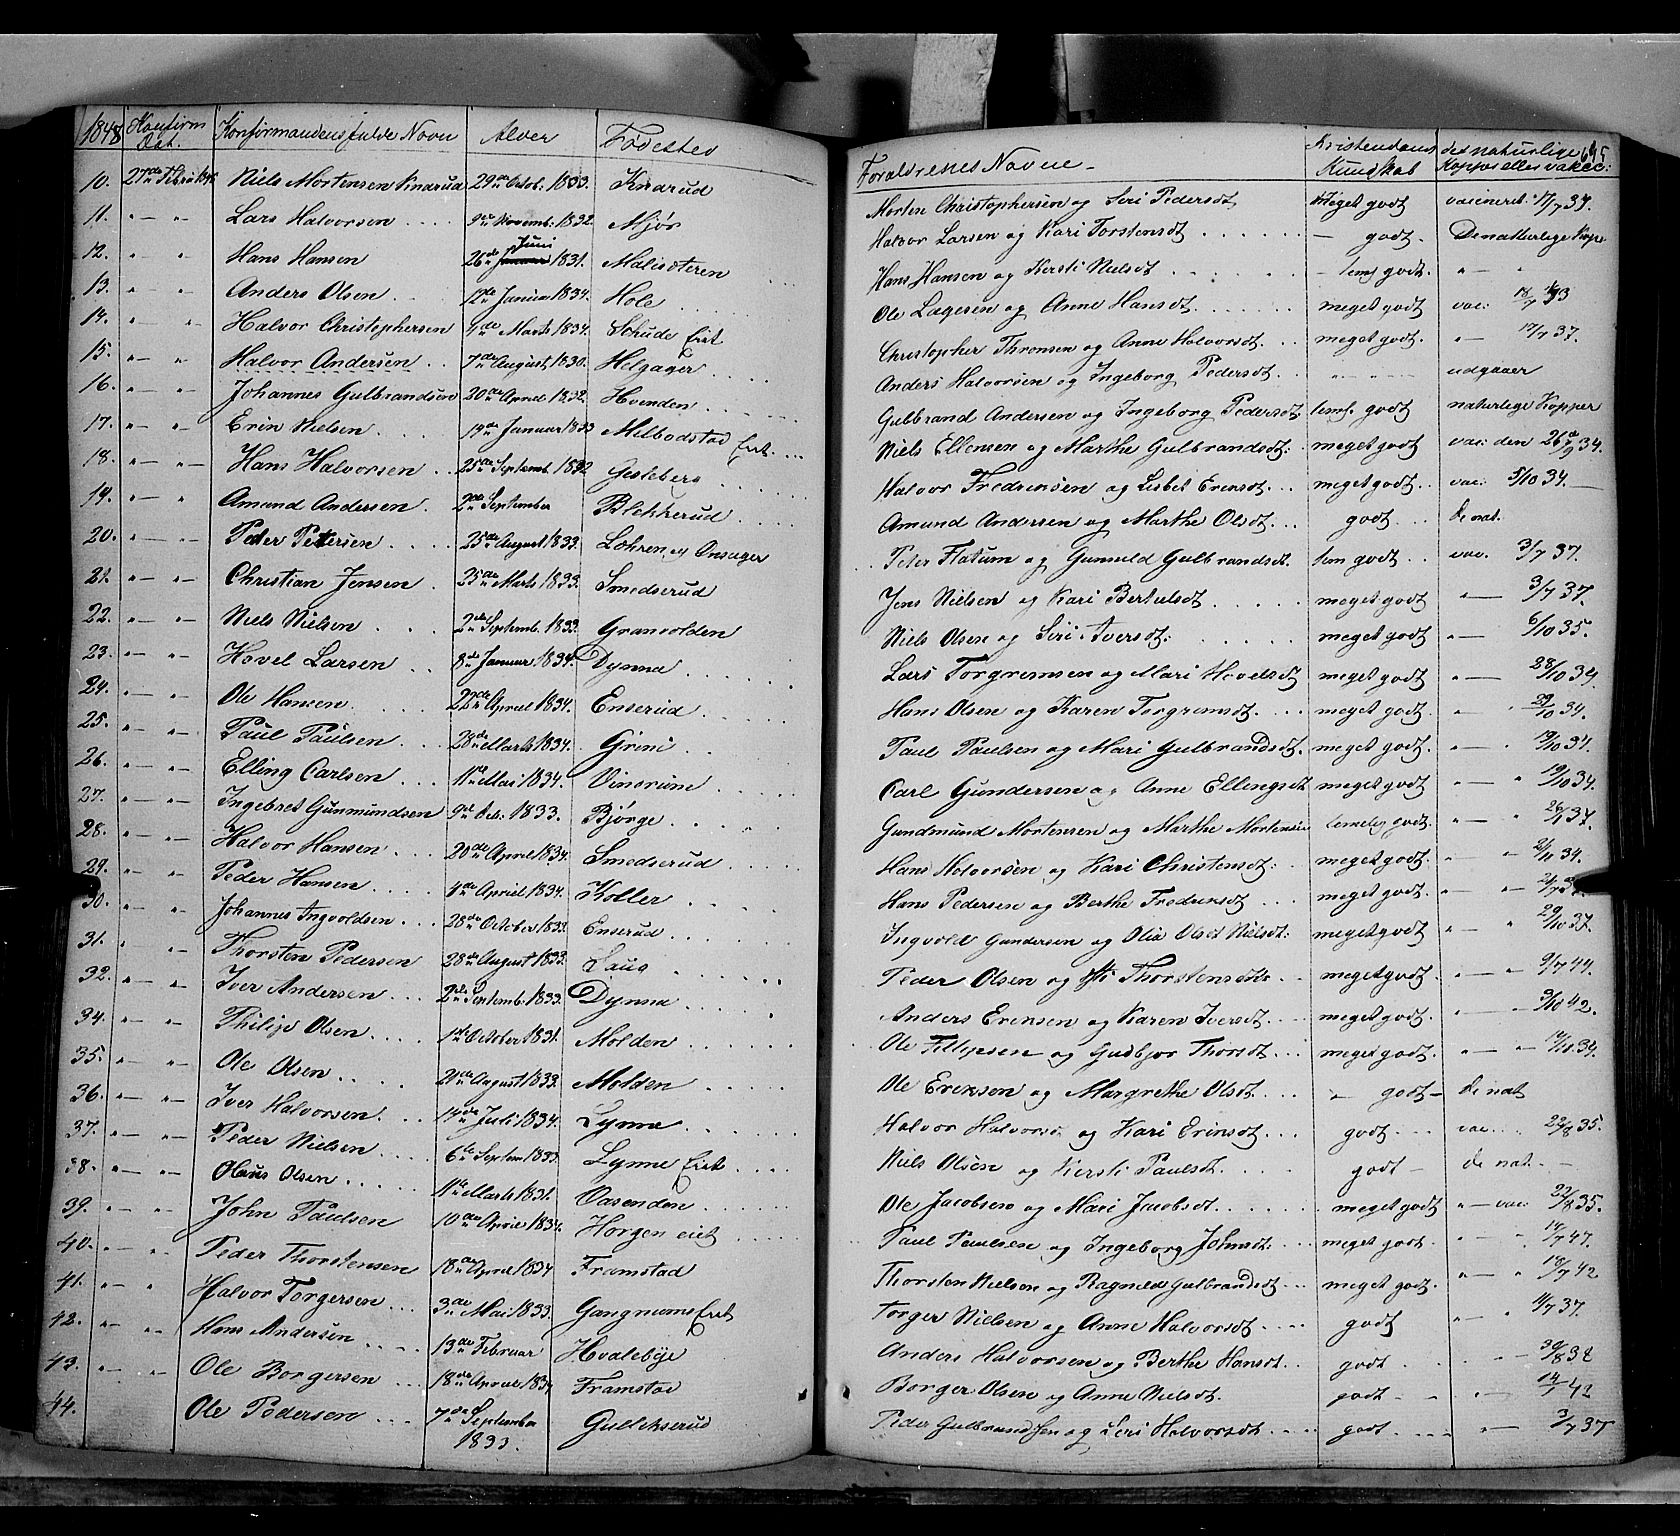 1848 Konfirm Dat. Konfirmandens fulde Navn Alder Fødested Forældrenes Navne Kristendoms Kundskab det naturlige Kopper eller vakc: 695
10. 27de Niels Mortensen Knarud 29de Octob. 1833. Knarud Morten Christophersen og Siri Pedersdt Meget godt vacineret 17/7 37.
11. Lars Halvorsen 9de Novemb. 1832. Mjør Halvor Larsen og Kari Torstensdt godt. De naturlige Kop
12. Hans Hansen 26de Juni 1831. Hans Hansen og Kersti Nielsdt temf godt.
13. Anders Olsen 12te Januar 1834. Hole Ole Lagesen og Anne Hansdt meget godt vac:
14. Halvor Christophersen Marts 1834. Schude Eiet Christopher Thronsen og Anne Halvorsdt. meget godt. 17/7 37.
15. Halvor Andersen 7de August 1830. Helgager Anders Halvorsen og Ingeborg Pedersdt. udgaaer
16. Johannes Gulbrandsen 20de April 1832. Hvenden Gulbrand Andersen og Ingeborg Pedersdt: temf. godt naturlige Kopper
17. Erin Nielsen 19de Januar 1833 Melbostad Eiet. Niels Ellensen og Marthe Gulbrandsdt: meget godt vac: den 26/9 34.
18. Hans Halvorsen 25de Septemb. 1832 Gesleberg Halvor Fredrensen og Lisbet Erensdt. meget godt vac: 5/10 34.
19. Amund Andersen 2de September Blekkerud Amund Andersen og Marthe Olsdt godt De nat.
20. Peder Petersen 25de August 1833. Løhren og Onsager Peter Flatum og Gunuld Gulbrandsdt. tem godt vac. 3/7 37.
21. Christian Jensen 25de Marts 1833. Smedserud Jens Nielsen og Kari Bertelsdt meget godt 3/7 37.
22. Niels Nielsen 2de Septemb. 1833. Granvolden Niels Olsen og Siri Iversdt: meget godt 6/10 35.
23. Hovel Larsen 8de Januar 1834. Dynna Lars Torgremsen og Mari Hovelsdt meget godt 28/10 34
24. Ole Hansen 22de April 1834. Enserud Hans Olsen og Karen Torgrimsdt. meget godt. 29/10 34.
25. Paul Paulsen 28de Marts 1834. Grini Paul Paulsen og Mari Gulbrandsdt. meget godt. 19/10 34.
26. Elling Carlsen 11te Mai 1834. Vinsrime Carl Gundersen og Anne Ellengsdt meget godt. 19/10 34.
27. Ingebret Gunmundsen 9de Oct. 1833. Bjørge Gundmund Mortensen og Marthe Mortensdt temelig godt. 26/1 37.
28. Halvor Hansen 20de April 1834. Smedserud Hans Halvorsen og Kari Christensdt: meget godt. 2/11 34.
29. Peder Hansen 4de April 1834. Koller Hans Pedersen og Berthe Fredriksdt meget godt
30. Johannes Ingvoldsen 28de October 1833. Enserud Ingvold Gundersen og Olia Olsdt Nielsdt: meget godt 29/10 37.
31. Thorsten Pedersen 28de August 1833. Laug Peder Olsen og Thorstensdt meget godt 9/7 44.
32. Iver Andersen 2de Septemb. 1833. Dynna Anders Erensen og Karen Iversdt meget godt. 3/10 42.
34. Philip Olsen 1ste October 1831. Molden Ole Fillipsen og Gudbjor Thorsdt meget godt. 12/10 34.
35. Ole Olsen 21de August 1833. Molden Ole Eriksen og Margrethe Olsdt. godt De nat
36. Iver Halvorsen 14de Juli 1834. Lynne Halvor Halvorsd og Kari Erensdt godt vac. 29/8 35.
37. Peder Nielsen 6te Septem 1833. Lynne Eiet Niels Olsen og Kersti Paulsdt. godt de nat.
38. Hans Olsen 11te Marts 1831. Oasenden Ole Jacobsen og Mari Jacobsdt. meget godt vac: 22/8 35.
39. John Paulsen 10de April 1834. Horgen eiet Paul Paulsen og Ingeborg Johnsdt: meget godt 14/7 47.
40. Peder Thorstensen 18de April 1834 Framstad Thorsten Nielsen og Ragnild Gulbrandsdt meget godt. 18/7 42
41. Halvor Torgersen 3de Mai 1833. Gangnums Eiet Torger Nielsen og Anne Halvorsdt. godt 11/7 37.
42. Hans Andersen 13de Februar Hvalebye Anders Halvorsen og Berthe Hansdt. godt 30/8 32
43. Ole Borgersen 18de April 1834 Framstad Borger Olsen og Anne Nielsdt. godt 14/1 42
44. Ole Pedersen 7de September 1833. Gullekserud Peder Gulbrandsen og Siri Halvorsdt. godt 3/7 37